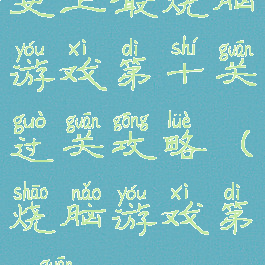 史上最烧脑
yóu xì dì shí guān
游戏第十关
guò guān gōng lüè
过关攻略（
shāo nǎo yóu xì dì
烧脑游戏第
guān